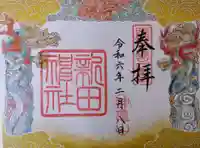 奉拝
令和六年二月八日
新田神社